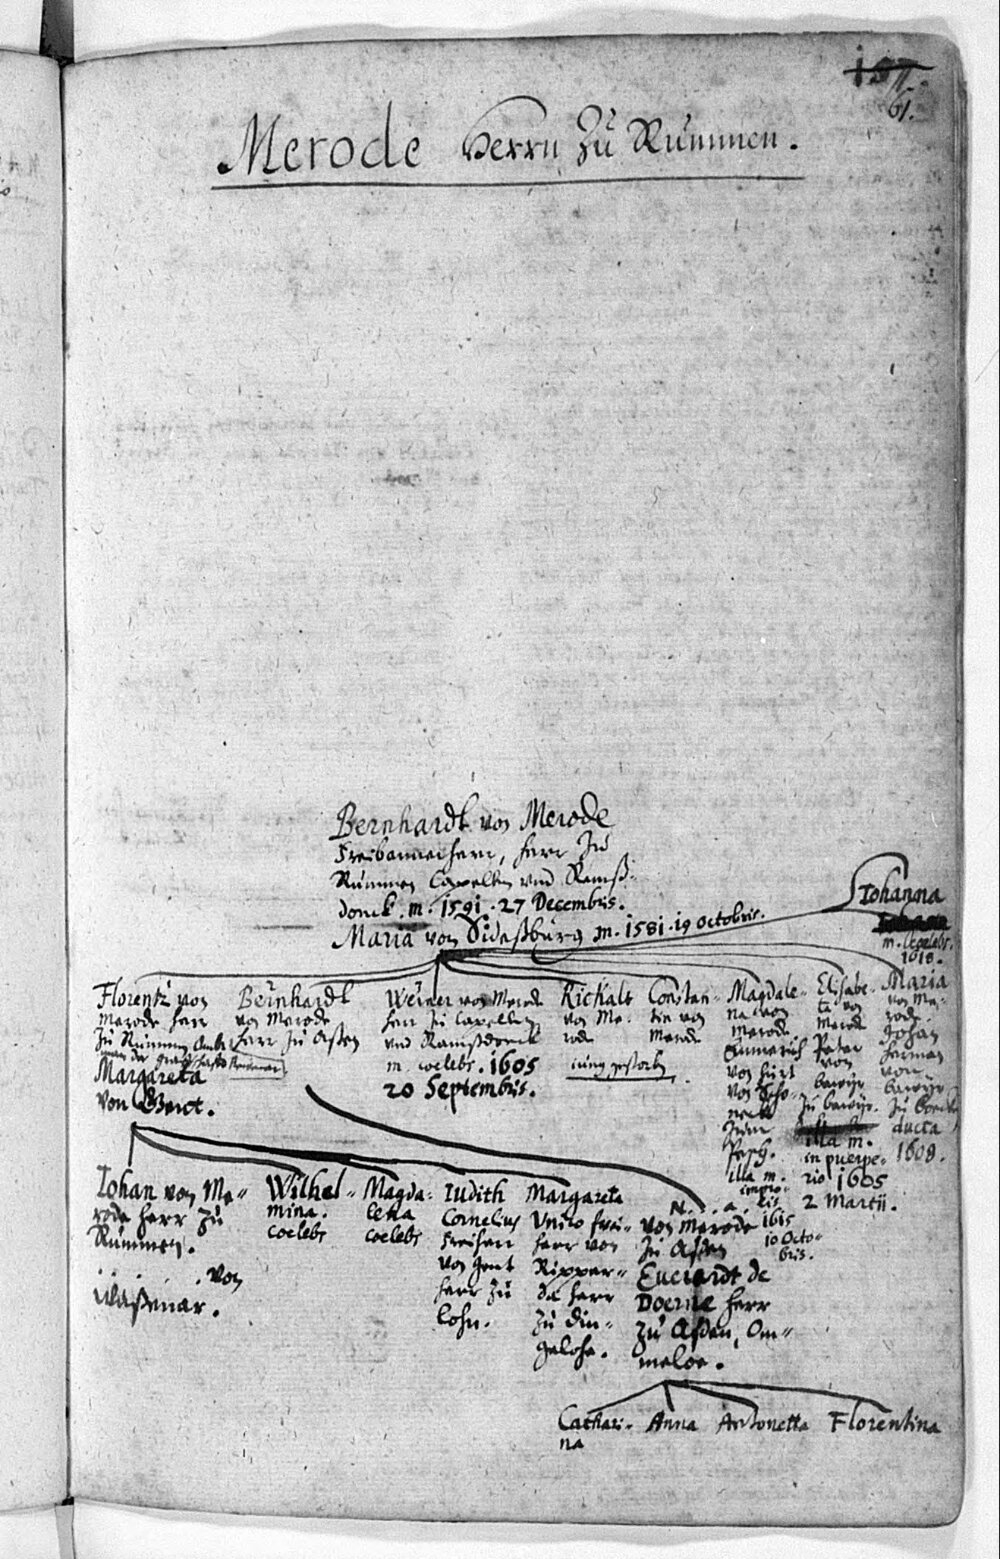 61.
Merode Herrn Zu Rummen.
Bernhardt von Merode
Freibannerherr, herr zu
Rummen Capellen und Ramß-
donck. m. 1591. 27 Decembris.
Maria von m. 1581. 19 octobris.
Iohanna
m. Coelebs.
1618.
Florentz von
Merode herr
zu Rummen
Margareta
von
Bernhardt
von Merode
herr zu Aßen
Werner von Merode
herr zu Capellen
und Ramßdonck
m. coelebs. 1605
20 Septembris.
Richalt
von Me-
rode
iung gestorben
Constan-
tin von
Merode
Magdale-
na von
Merode
Emmerich
von
von
illa m.
1615
10 Octo-
bris.
Elisabe-
ta von
Merode
Peter
von
illa m.
in puerpe-
rio 1605
2 Martii.
Maria
von Me-
rode.
Johan
Herman
von
ducta
1608.
Iohan von Me=
rode herr zu
Rummen.
. von
Waßenar.
Wilhel-
mina.
coelebs
Magda-
lena
coelebs
Iudith
Cornelius
Freiherr
von Gent
herr zu
lohn.
Margareta
Unico frei-
herr von
Ripper=
da herr
zu Din-
gelohe.
N. . a.
von Merode
zu Aßen
Everardt de
Doerne herr
zu Aßen, Om=
meloe.
Cathari-
na
Anna
Antonetta
Florentina